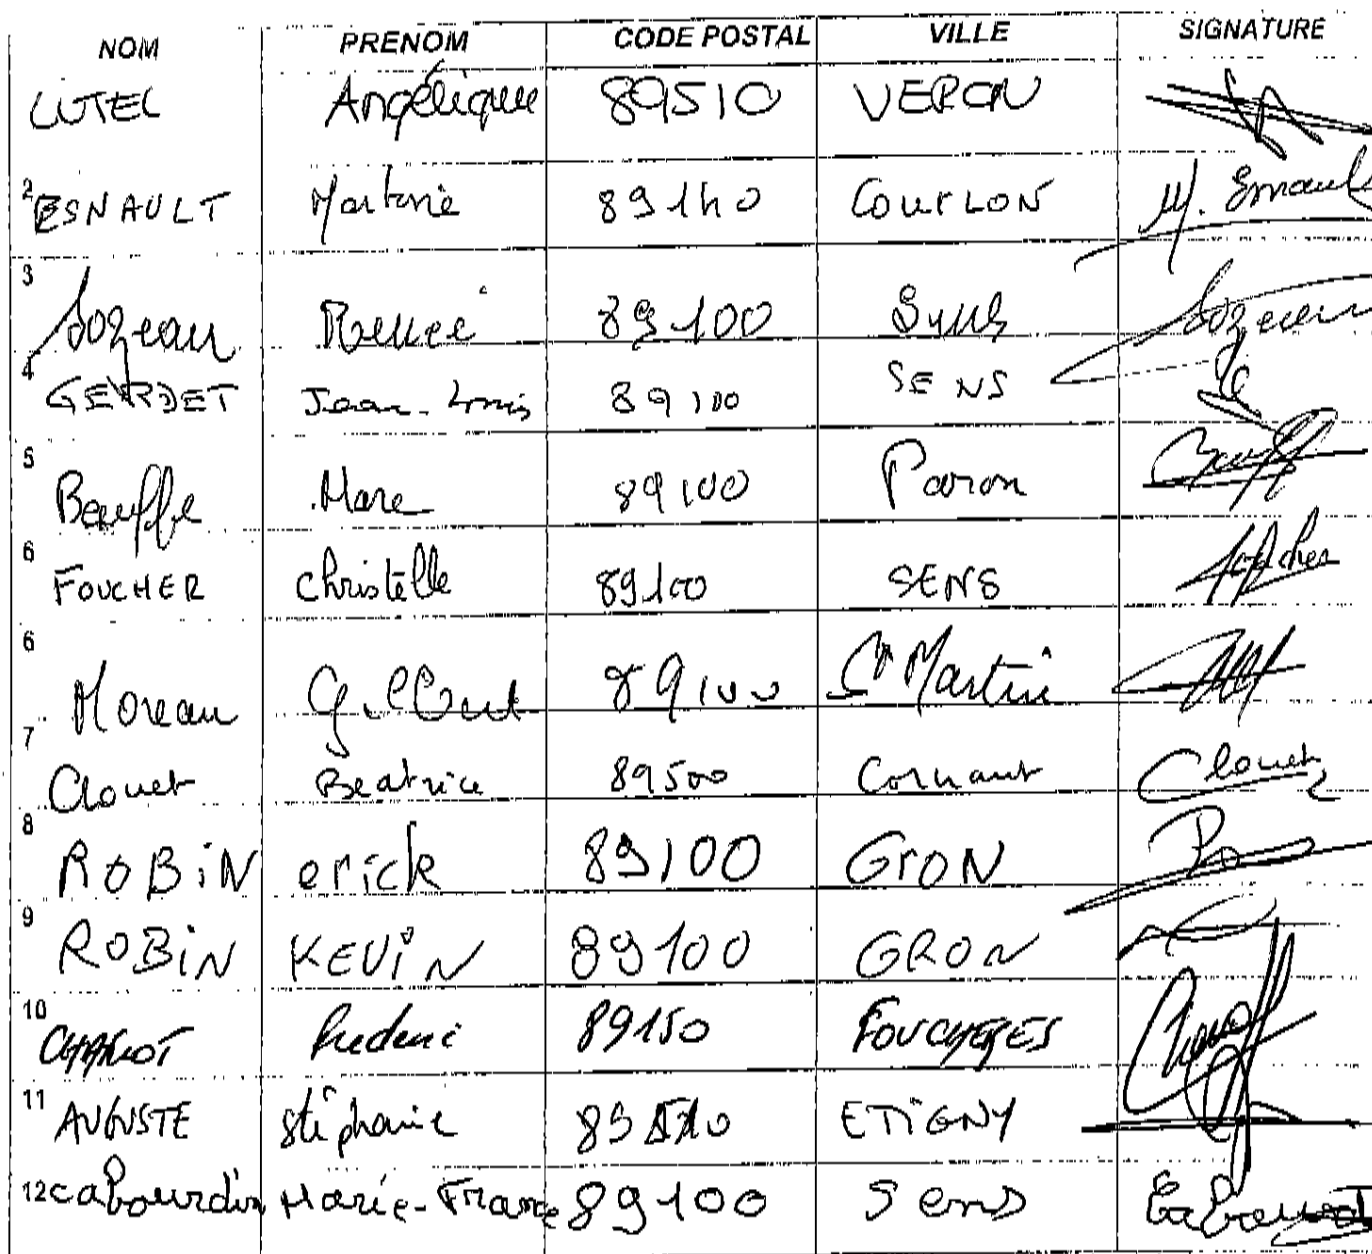 NOM PRENOM CODE POSTAL VILLE SIGNATURE
LUTEL Angélique 89510 VERON
2 ESNAULT Martine 89140 COURLON M. Esnault
3 Sozeau Renée 89100 Sens Sozeau
4 GERDET Jean-Louis 89100 SENS
5 Beauffe Marc 89100 Paron
6 FOUCHER Christelle 89100 SENS
6 Moreau Gilbert 89100 St Martin
7 Clouet Beatrice 89500 Cornant Clouet
8 ROBiN erick 89100 GrON
9 ROBiN KEViN 89100 GRON
10 CHARLOT frederic 89150 FOUCHERES
11 AUGUSTE stéphanie 89510 ETiGNY
12 cabourdin Marie-France 89100 Sens